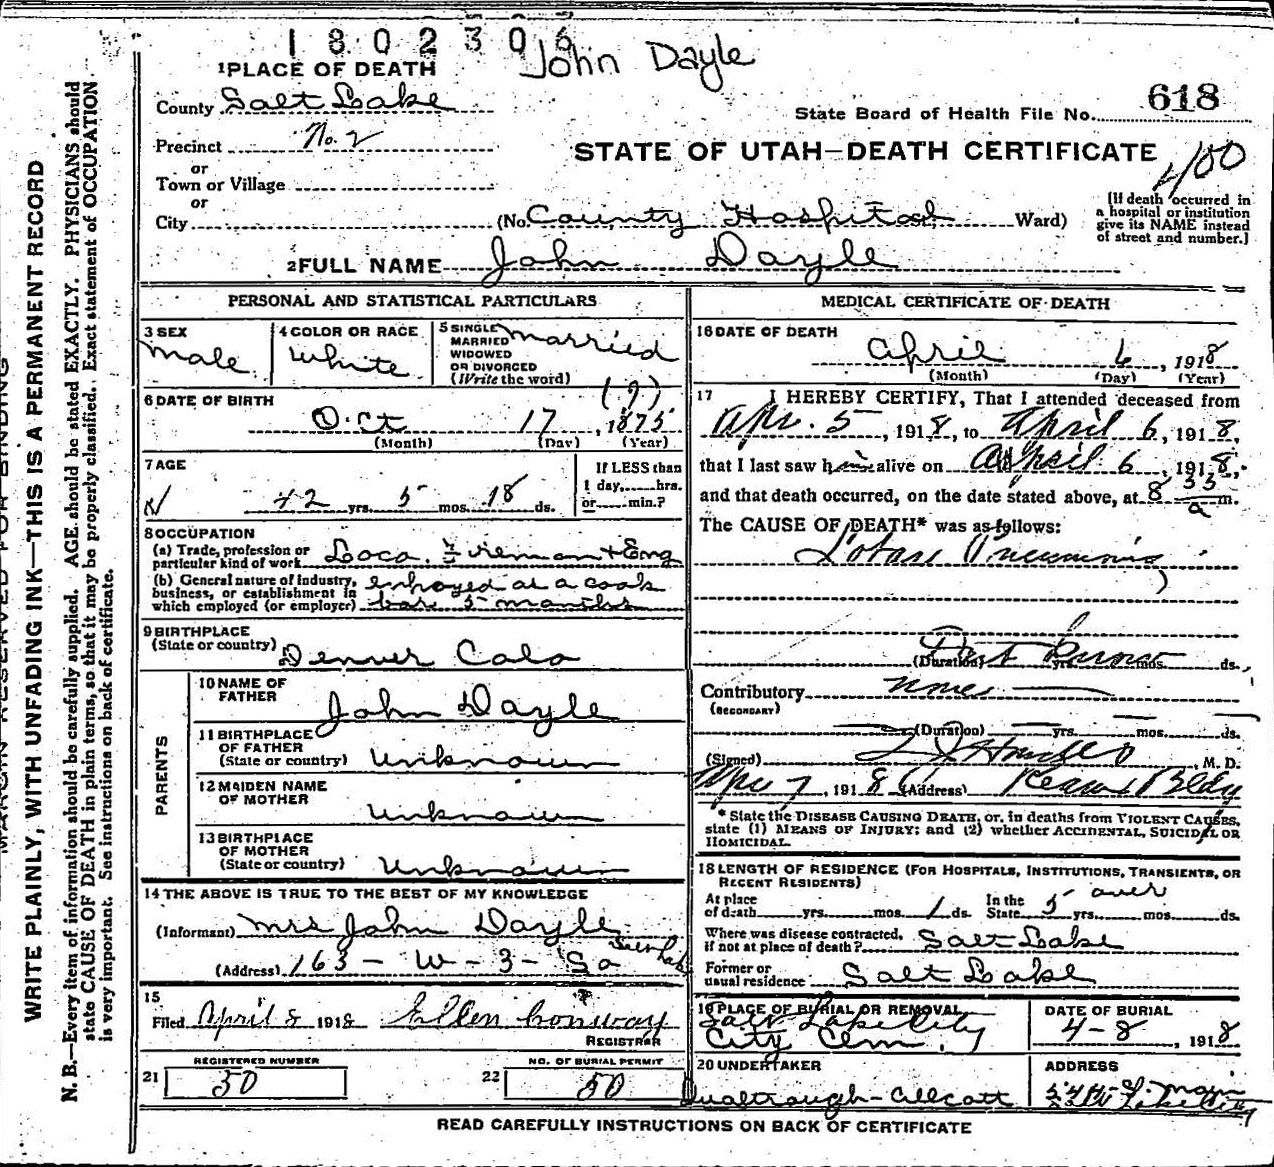 1802306
John Dayle
1 PLACE OF DEATH
County Salt Lake
State Board of Health File No. 618
Precinct No. 2
STATE OF UTAH—DEATH CERTIFICATE
400
or
Town or Village
or
City (No. County Hospital Ward)
[If death occurred in a hospital or institution give its NAME instead of street and number.]
2 FULL NAME John Dayle
WRITE PLAINLY, WITH UNFADING INK—THIS IS A PERMANENT RECORD
N. B.—Every item of information should be carefully supplied. AGE should be stated EXACTLY. PHYSICIANS should
state CAUSE OF DEATH in plain terms, so that it may be properly classified. Exact statement of OCCUPATION
is very important. See instructions on back of certificate.
PERSONAL AND STATISTICAL PARTICULARS
3 SEX Male
4 COLOR OR RACE White
5 SINGLE MARRIED WIDOWED OR DIVORCED (Write the word) Married
6 DATE OF BIRTH (?)
Oct 17, 1875
(Month) (Day) (Year)
7 AGE
42 yrs. 5 mos. 18 ds.
If LESS than 1 day, hrs. or min.?
8 OCCUPATION
(a) Trade, profession or particular kind of work Loco. Fireman + Eng
(b) General nature of industry, business, or establishment in which employed (or employer) employed at a
5 months
9 BIRTHPLACE
(State or country) Denver Colo
PARENTS
10 NAME OF FATHER John Dayle
11 BIRTHPLACE OF FATHER (State or country) Unknown
12 MAIDEN NAME OF MOTHER Unknown
13 BIRTHPLACE OF MOTHER (State or country) Unknown
14 THE ABOVE IS TRUE TO THE BEST OF MY KNOWLEDGE
(Informant) Mrs John Dayle
(Address) 163 - W - 3 - So
15
Filed April 8 1918 Ellen Conway
REGISTRAR
REGISTERED NUMBER NO. OF BURIAL PERMIT
21 50 22 50
MEDICAL CERTIFICATE OF DEATH
16 DATE OF DEATH
April 6, 1918
(Month) (Day) (Year)
17 I HEREBY CERTIFY, That I attended deceased from
Apr. 5, 1918, to April 6, 1918,
that I last saw him alive on April 6, 1918,
and that death occurred, on the date stated above, at 8 35 a m.
The CAUSE OF DEATH* was as follows:
Lobar Pneumonia
(Duration) yrs. mos. ds.
Contributory none
(SECONDARY)
(Duration) yrs. mos. ds.
(Signed) M. D.
Apr 7, 1918 (Address) Kearns Bldg
* State the DISEASE CAUSING DEATH, or, in deaths from VIOLENT CAUSES,
state (1) MEANS OF INJURY; and (2) whether ACCIDENTAL, SUICIDAL OR
HOMICIDAL.
18 LENGTH OF RESIDENCE (FOR HOSPITALS, INSTITUTIONS, TRANSIENTS, OR
RECENT RESIDENTS)
At place of death yrs. mos. 1 ds. In the State 5 over yrs. mos. ds.
Where was disease contracted, if not at place of death? Salt Lake
Former or usual residence Salt Lake
19 PLACE OF BURIAL OR REMOVAL
Salt Lake City
City Cem.
DATE OF BURIAL
4-8, 1918
20 UNDERTAKER ADDRESS
READ CAREFULLY INSTRUCTIONS ON BACK OF CERTIFICATE